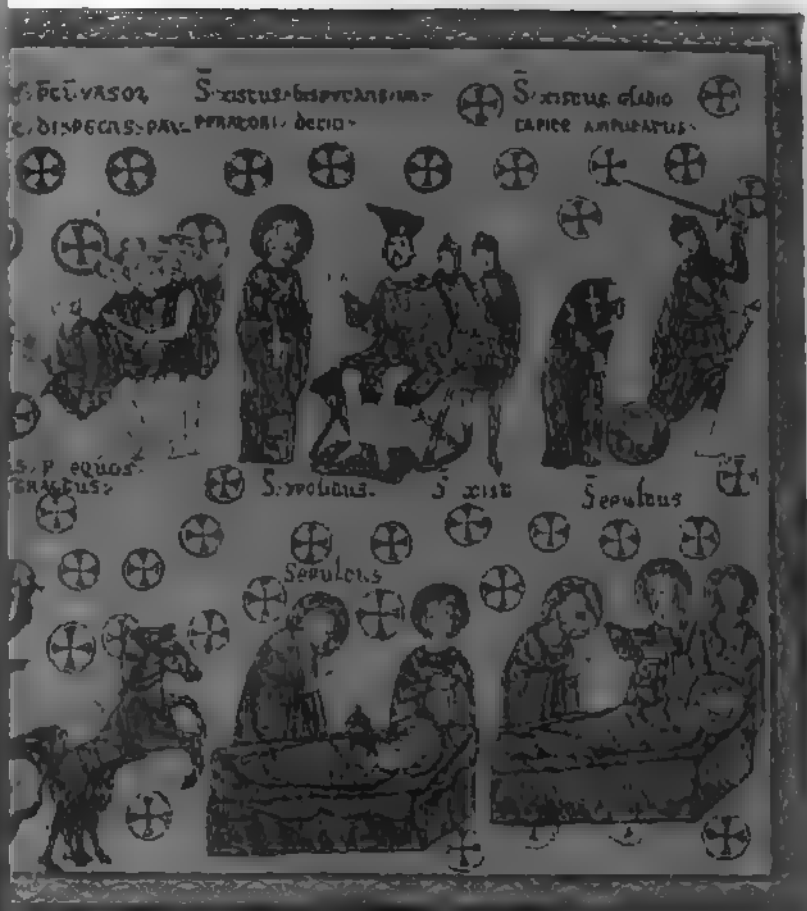 S̄ XISTUS DISPUTANS IM-
PERATORI DECIO
S̄ XISTUS GLADIO
CAPITE AMPUTATUS
EQUOS
TRACTUS
S̄ YPOLITUS
S̄ XIST
SEPULTUS
SEPULTUS